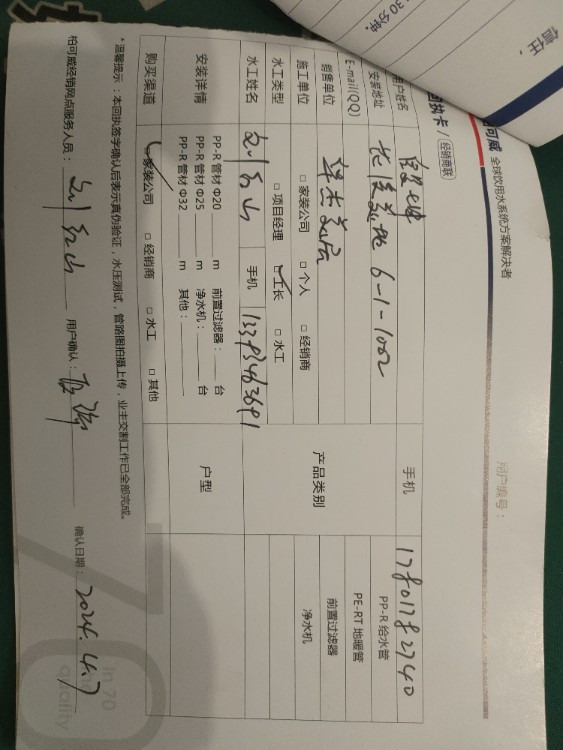 30 分钟.
信任,
回执卡 / 经销商联
可威 全球饮用水系统方案解决者
用户编号：
用户姓名
手机 17801782740
安装地址 6-1-1002
E-mail(QQ)
销售单位
施工单位 □ 家装公司 □ 个人 □ 经销商
产品类别
PP-R 给水管
PE-RT 地暖管
前置过滤器
净水机
水工类型 □ 项目经理 □ 工长 □ 水工
水工姓名 刘红山 手机 13393463691
安装详情
PP-R 管材 Φ20 m 前置过滤器： 台
PP-R 管材 Φ25 m 净水机： 台
PP-R 管材 Φ32 m 其他：
户型
购买渠道 □ 家装公司 □ 经销商 □ 水工 □ 其他
* 温馨提示：本回执签字确认后表示真伪验证，水压测试，管路图拍摄上传，业主交割工作已全部完成。
柏可威经销网点服务人员： 刘红山 用户确认： 确认日期： 2024.4.7
in 70
quality